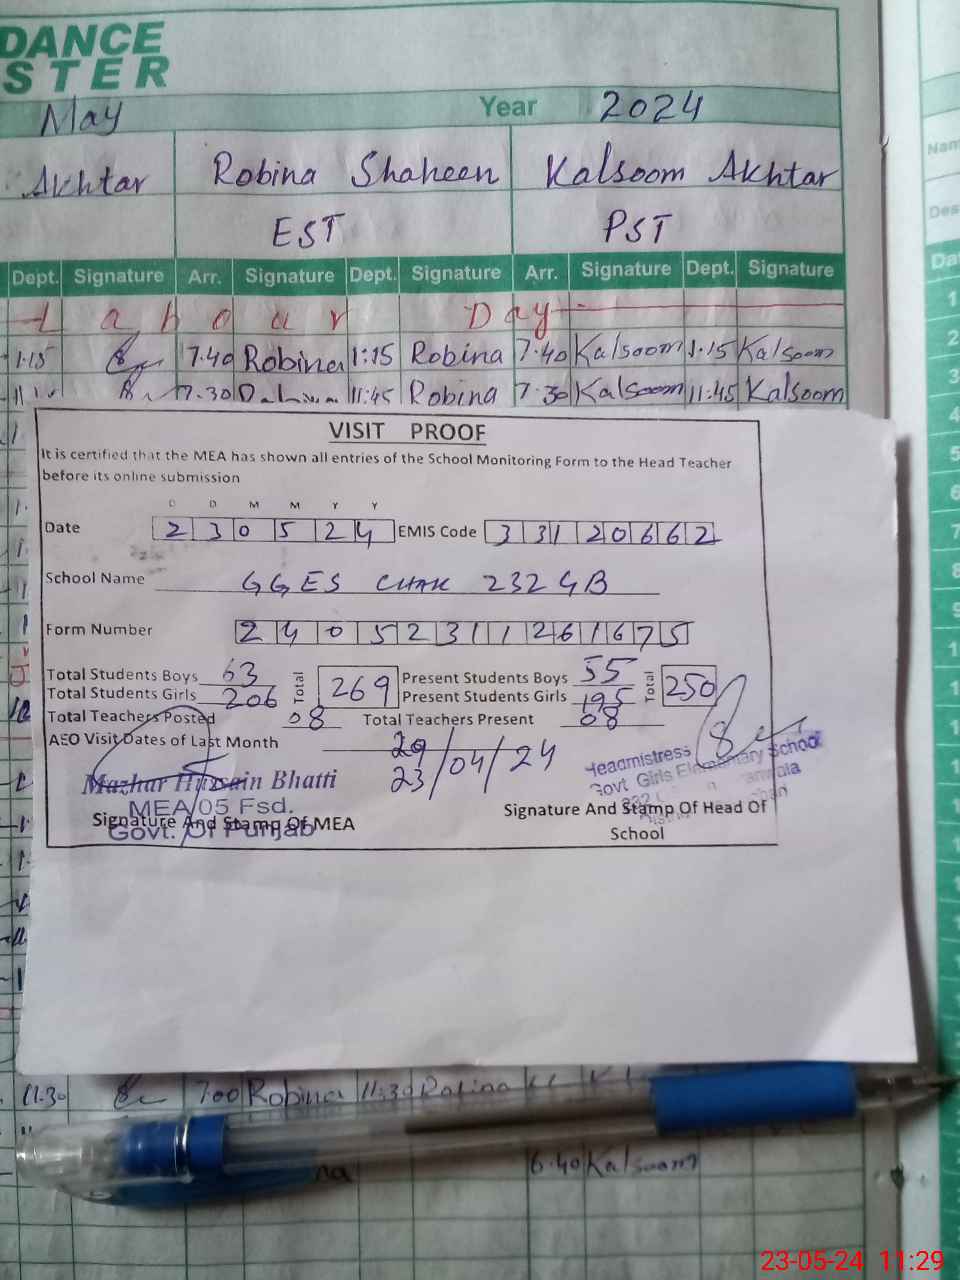 DANCE
STER
May Year 2024
Akhtar Robina Shaheen Kalsoom Akhtar
EST PST
Dept. Signature Arr. Signature Dept. Signature Arr. Signature Dept. Signature
Labour Day
1.15 7.40 Robina 1:15 Robina 7.40 Kalsoom 1.15 Kalsoom
7.30 11:45 Robina 7.30 Kalsoom 11:45 Kalsoom
VISIT PROOF
It is certified that the MEA has shown all entries of the School Monitoring Form to the Head Teacher
before its online submission
D D M M Y Y
Date 230524 EMIS Code 33120662
School Name GGES CHAK 232 GB
Form Number 24052311261675
Total Students Boys 63 Total 269 Present Students Boys 55 Total 250
Total Students Girls 206 Present Students Girls 195
Total Teachers Posted 08 Total Teachers Present 08
AEO Visit Dates of Last Month 29 23/04/24
Mazhar Hussain Bhatti
MEA/05 Fsd.
Govt. Of Punjab
Signature And Stamp Of MEA
Headmistress
Govt Girls Elementary School
232
Signature And Stamp Of Head Of
School
11.30 7.00 Robina 11:30 Robina
6.40 Kalsoom
Nam
Des
Da
1
2
3
4
5
6
7
8
9
23-05-24 11:29